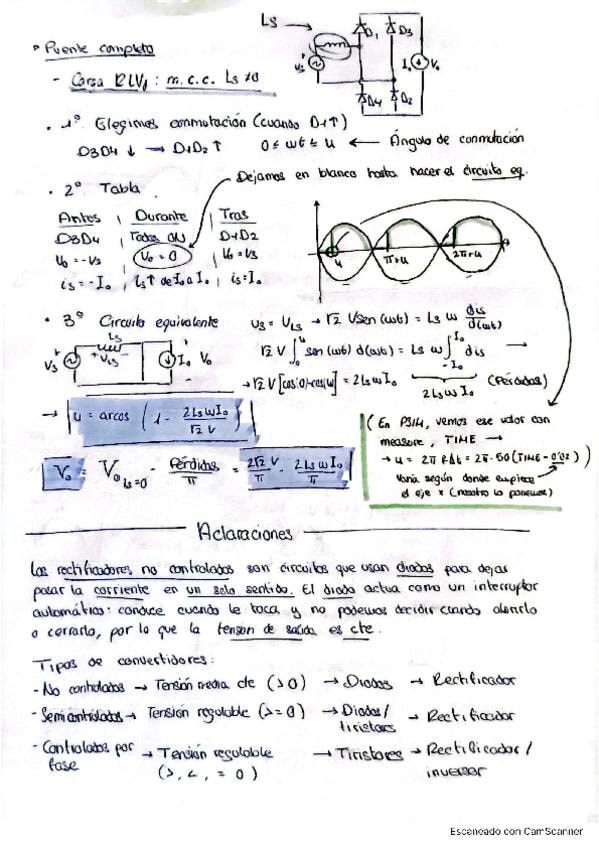 Puente completo
Ls
D1 D3
Vs
Io Vo
D4 D2
- Carga RLVd: m.c.c. Ls ≠ 0
· 1º Elegimos conmutación (cuando D1↑)
D3D4 ↓ → D1D2 ↑ 0 ≤ wt ≤ u ← Ángulo de conmutación
· 2º Tabla
Dejamos en blanco hasta hacer el circuito eq.
Antes | Durante | Tras
D3D4 | Todos ON | D1D2
Vo = -Vs | Vo = 0 | Vo = Vs
is = -Io | is↑ de Io a Io | is = Io
u π+u 2π+u
· 3º Circuito equivalente
Ls
Vs + VLs - Io Vo
Us = VLs → √2 V sen(wt) = Ls w dis/d(wt)
√2 V ∫₀ᵘ sen(wt) d(wt) = Ls w ∫₋Io^Io dis →
→ √2 V [cos(0)-cos(u)] = 2Ls w Io
2Ls w Io (Pérdidas)
→ u = arcos (1 - 2LswIo/√2 V)
Vo = Vo Ls=0 - Pérdidas/π = 2√2 V/π - 2LswIo/π
(En PSIM, vemos ese valor con
measure, TIME →
→ u = 2π f·Δt = 2π·50 (TIME - 0'02)
Varía según donde empiece
el eje x (nosotro lo ponemos)
Aclaraciones
Los rectificadores no controlados son circuitos que usan diodos para dejar
pasar la corriente en un solo sentido. El diodo actua como un interruptor
automático: conduce cuando le toca y no podemos decidir cuando abrirlo
o cerrarlo, por lo que la tension de salida es cte.
Tipos de convertidores:
- No controlados → Tensión media cte (>0) → Diodos → Rectificador
- Semicontrolados → Tensión regulable (>=0) → Diodos/ tiristores → Rectificador
- Controlados por fase → Tensión regulable (>, <, = 0) → Tiristores → Rectificador / inversor
Escaneado con CamScanner